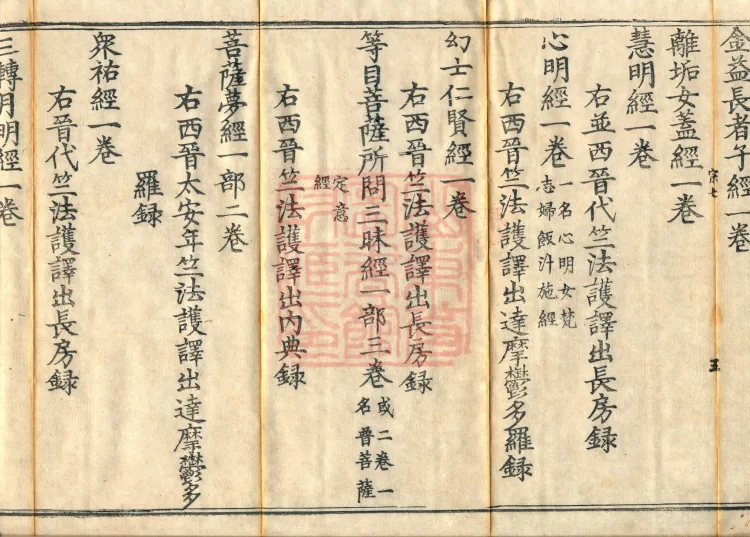 金益長者子經一卷
離垢女蓋經一卷
宗七
五
慧明經一卷
右並西晉代竺法護譯出長房録
心明經一卷 一名心明女梵
志婦飯汁施經
右西晉竺法護譯出達摩鬱多羅録
幻士仁賢經一卷
右西晉竺法護譯出長房録
等目菩薩所問三昧經一部三卷 或二卷一
名普菩薩
定意
經
右西晉竺法護譯出內典録
菩薩夢經一部二卷
右西晉太安年竺法護譯出達摩鬱多
羅録
衆祐經一卷
右晉代竺法護譯出長房録
三轉月明經一卷